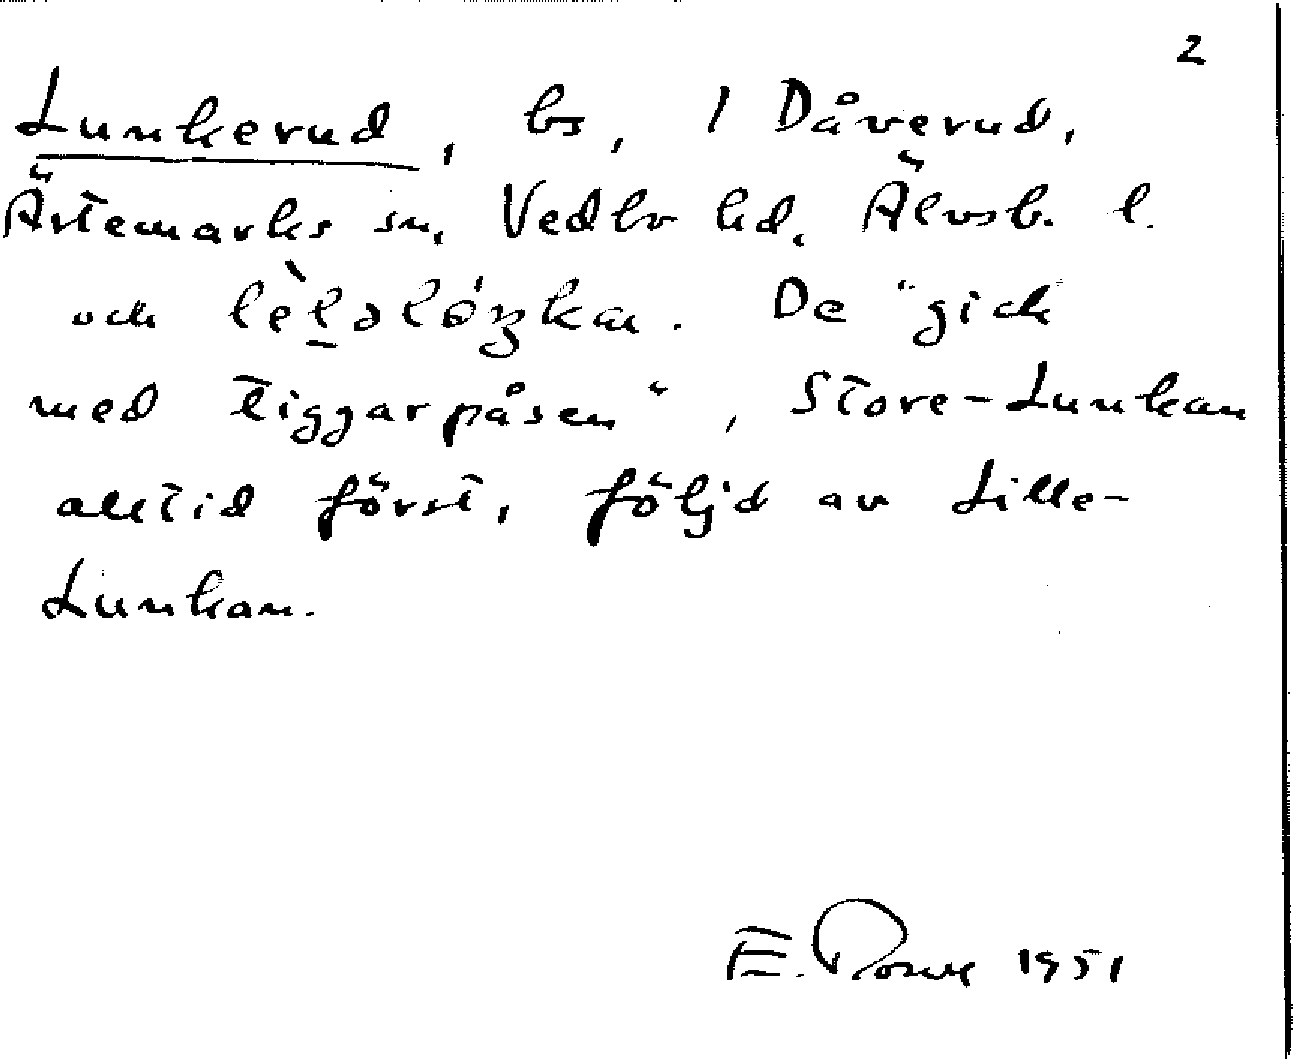 2
Lunkerud, bs, 1 Dåverud,
Ärtemarks sn, Vedbo hd, Älvsb. l.
och. De "gick
med tiggarpåsen", Store-Lunkan
alltid först, följd av Lille-
Lunkan.
E. 1951